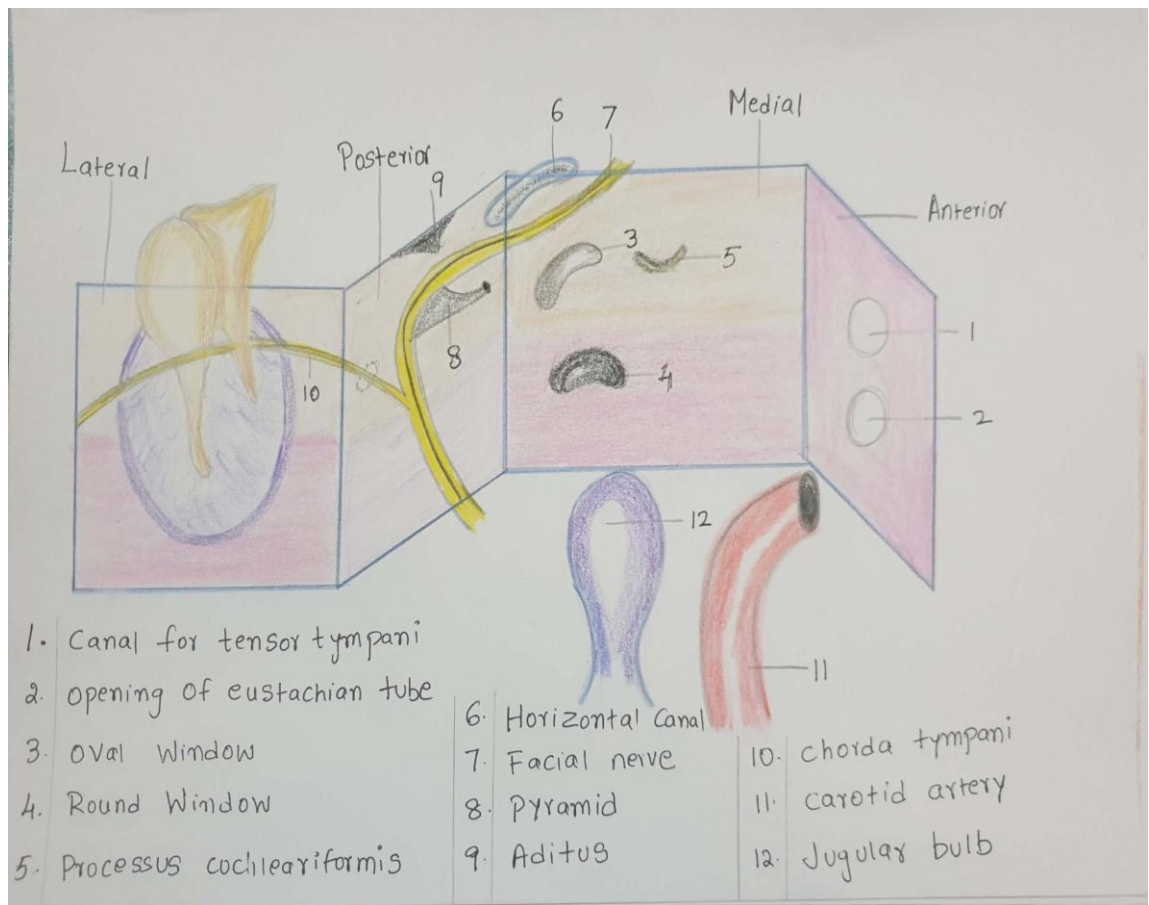 6
7
Medial
Lateral
Posterior
9
Anterior
3
5
1
8
4
10
2
12
11
1. Canal for tensor tympani
2. opening of eustachian tube
3. Oval Window
4. Round Window
5. Processus cochleariformis
6. Horizontal Canal
7. Facial nerve
8. Pyramid
9. Aditus
10. Chorda tympani
11. Carotid artery
12. Jugular bulb